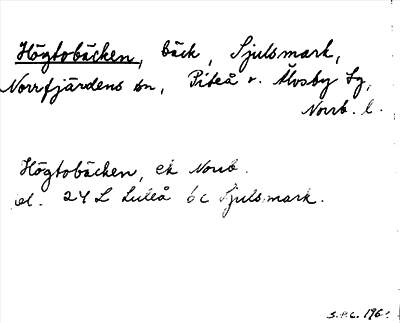 Högtobäcken, bäck, Sjulsmark,
Norrfjärdens sn, Piteå o. Älvsby tg,
Norrb. l.
Högtobäcken, ek Norrb.
bl. 24 L Luleå 6c Sjulsmark.